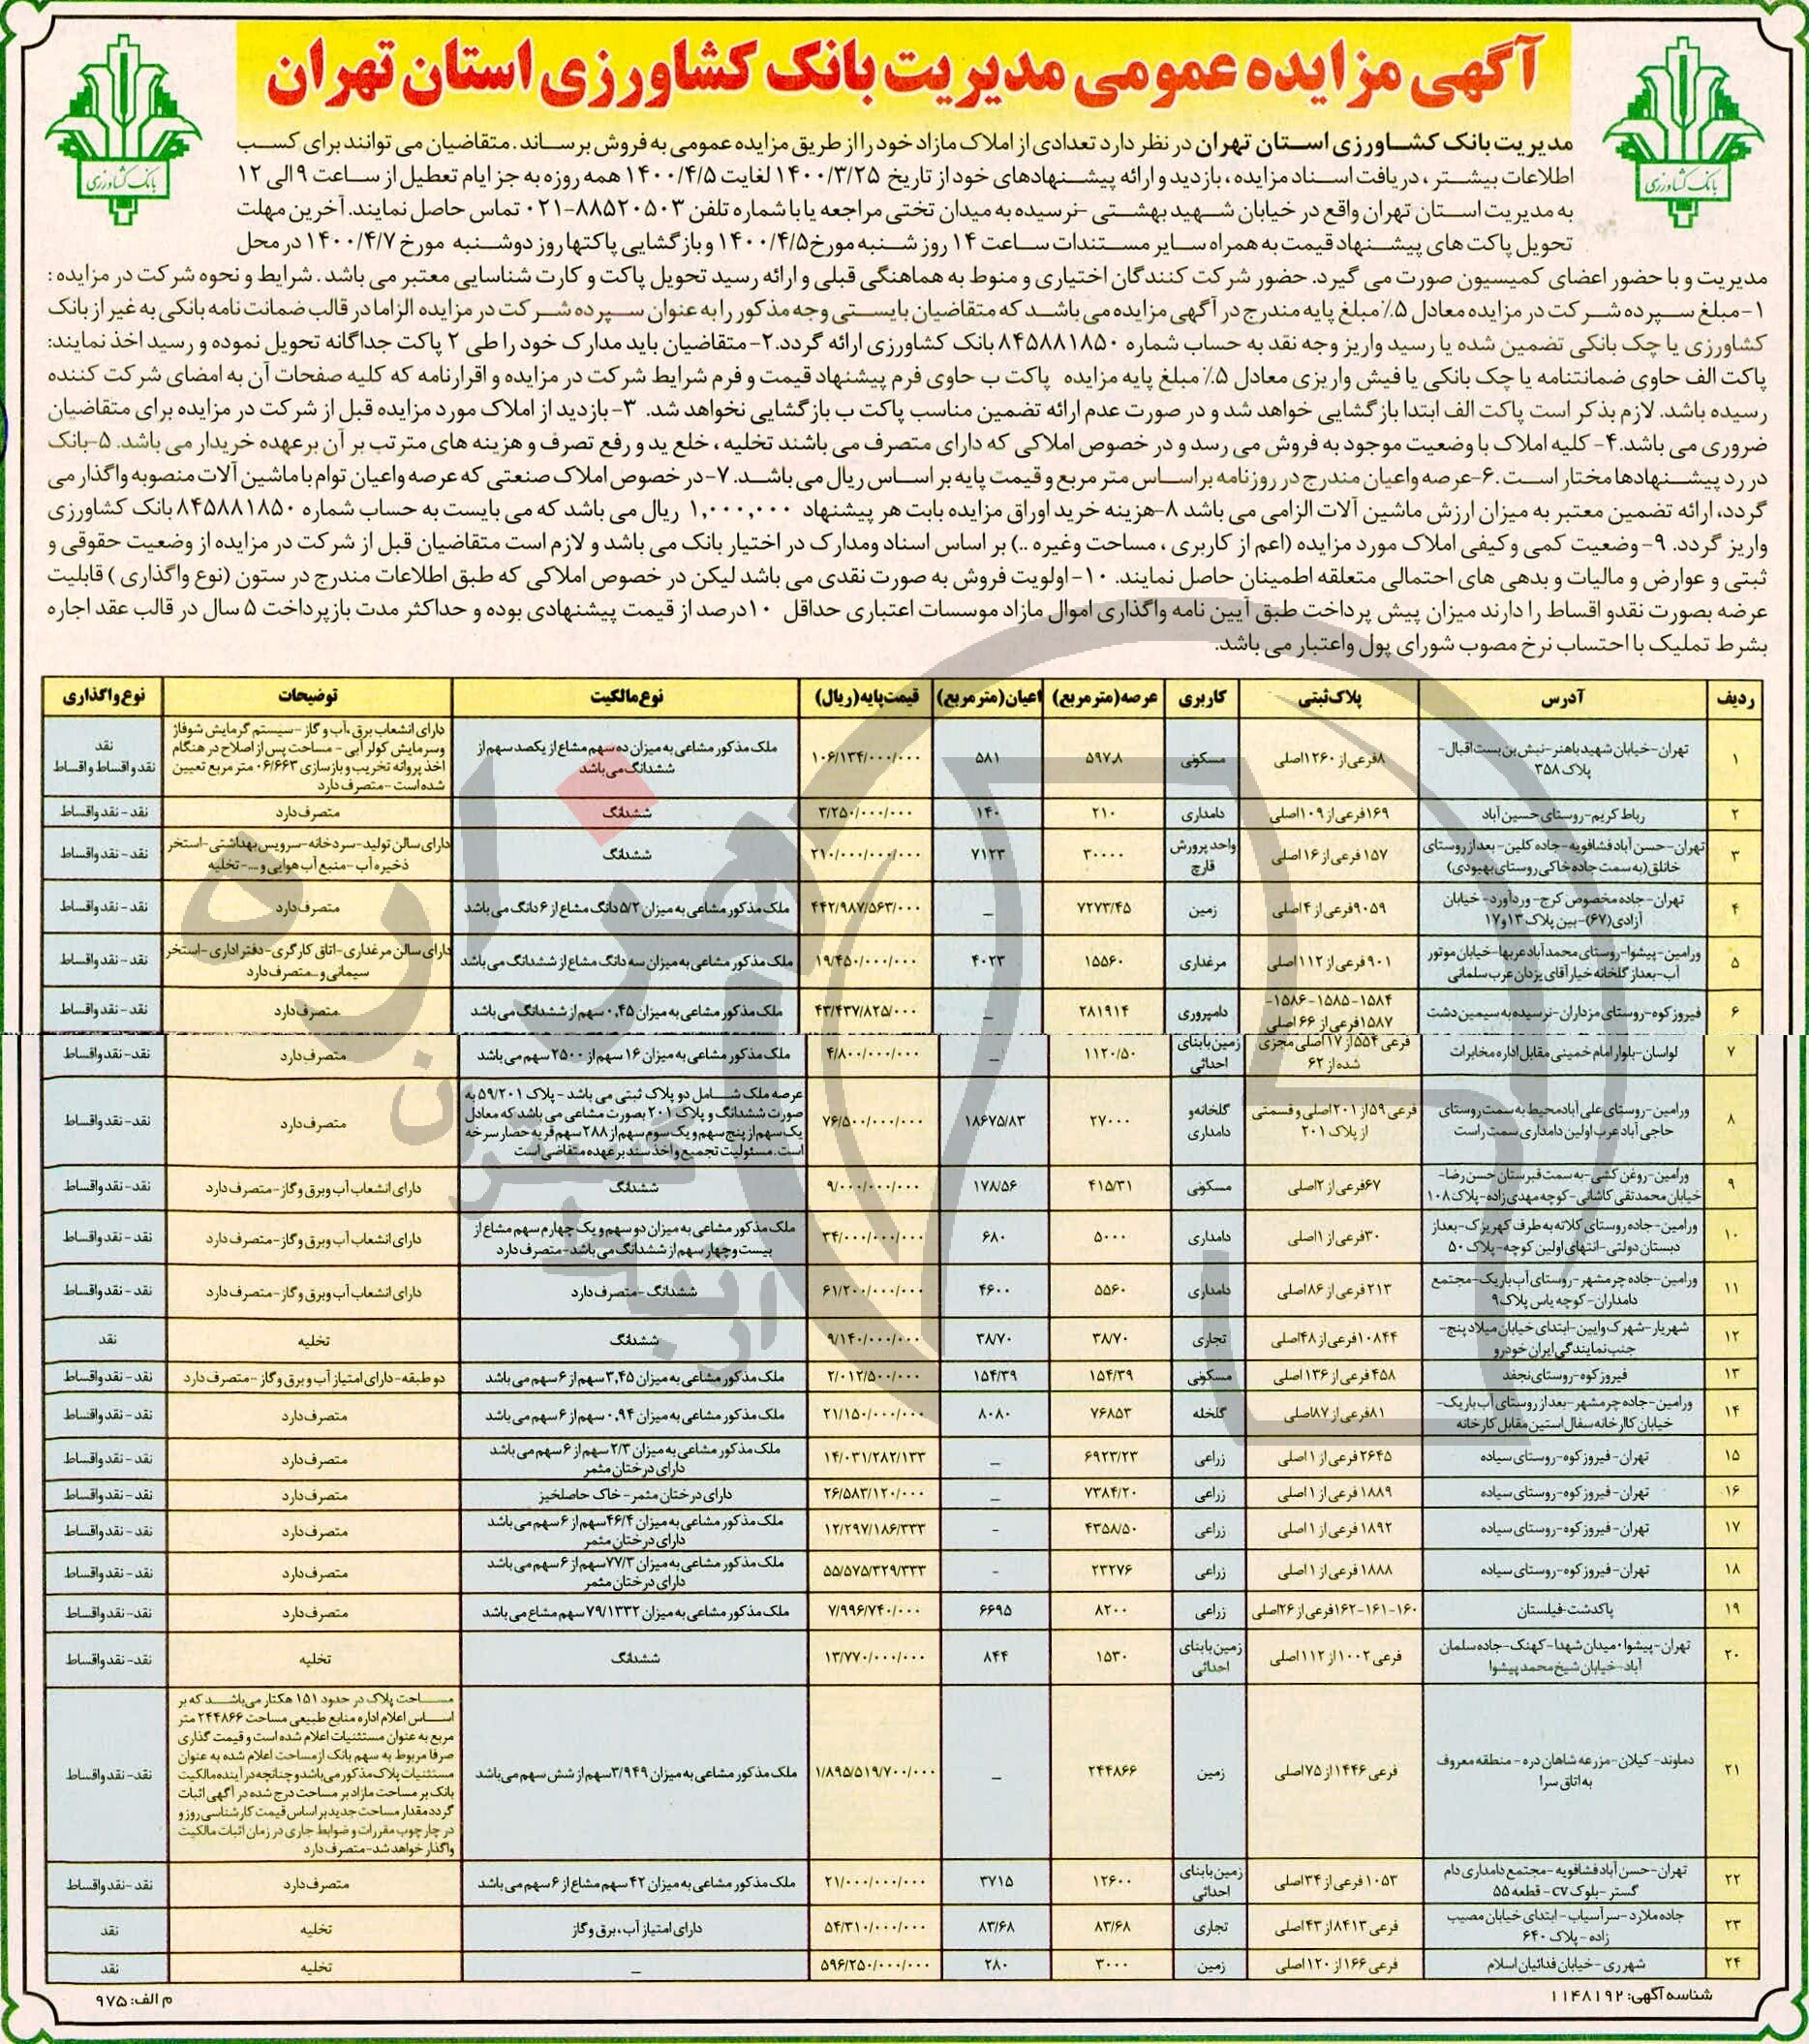 آگهی مزایده عمومی مدیریت بانک کشاورزی استان تهران
بانک کشاورزی
بانک کشاورزی
مدیریت بانک کشاورزی استان تهران در نظر دارد تعدادی از املاک مازاد خود را از طریق مزایده عمومی به فروش برساند. متقاضیان می توانند برای کسب
اطلاعات بیشتر ، دریافت اسناد مزایده ، بازدید و ارائه پیشنهادهای خود از تاریخ ۱۴۰۰/۳/۲۵ لغایت ۱۴۰۰/۴/۵ همه روزه به جز ایام تعطیل از ساعت ۹ الی ۱۲
به مدیریت استان تهران واقع در خیابان شهید بهشتی -نرسیده به میدان تختی مراجعه یا با شماره تلفن ۸۸۵۲۰۵۰۳-۰۲۱ تماس حاصل نمایند. آخرین مهلت
تحویل پاکت های پیشنهاد قیمت به همراه سایر مستندات ساعت ۱۴ روز شنبه مورخ ۱۴۰۰/۴/۵ و بازگشایی پاکتها روز دوشنبه مورخ ۱۴۰۰/۴/۷ در محل
مدیریت و با حضور اعضای کمیسیون صورت می گیرد. حضور شرکت کنندگان اختیاری و منوط به هماهنگی قبلی و ارائه رسید تحویل پاکت و کارت شناسایی معتبر می باشد . شرایط و نحوه شرکت در مزایده :
۱-مبلغ سپرده شرکت در مزایده معادل ۵٪ مبلغ پایه مندرج در آگهی مزایده می باشد که متقاضیان بایستی وجه مذکور را به عنوان سپرده شرکت در مزایده الزاما در قالب ضمانت نامه بانکی به غیر از بانک
کشاورزی یا چک بانکی تضمین شده یا رسید واریز وجه نقد به حساب شماره ۸۴۵۸۸۱۸۵۰ بانک کشاورزی ارائه گردد.۲-متقاضیان باید مدارک خود را طی ۲ پاکت جداگانه تحویل نموده و رسید اخذ نمایند:
پاکت الف حاوی ضمانتنامه یا چک بانکی یا فیش واریزی معادل ۵٪ مبلغ پایه مزایده پاکت ب حاوی فرم پیشنهاد قیمت و فرم شرایط شرکت در مزایده و اقرارنامه که کلیه صفحات آن به امضای شرکت کننده
رسیده باشد. لازم بذکر است پاکت الف ابتدا بازگشایی خواهد شد و در صورت عدم ارائه تضمین مناسب پاکت ب بازگشایی نخواهد شد. ۳-بازدید از املاک مورد مزایده قبل از شرکت در مزایده برای متقاضیان
ضروری می باشد.۴- کلیه املاک با وضعیت موجود به فروش می رسد و در خصوص املاکی که دارای متصرف می باشند تخلیه ، خلع ید و رفع تصرف و هزینه های مترتب بر آن برعهده خریدار می باشد. ۵-بانک
در رد پیشنهادها مختار است .۶-عرصه و اعیان مندرج در روزنامه بر اساس متر مربع و قیمت پایه بر اساس ریال می باشد. ۷-در خصوص املاک صنعتی که عرصه و اعیان توام با ماشین آلات منصوبه واگذار می
گردد، ارائه تضمین معتبر به میزان ارزش ماشین آلات الزامی می باشد ۸-هزینه خرید اوراق مزایده بابت هر پیشنهاد ۱,۰۰۰,۰۰۰ ریال می باشد که می بایست به حساب شماره ۸۴۵۸۸۱۸۵۰ بانک کشاورزی
واریز گردد. ۹-وضعیت کمی وکیفی املاک مورد مزایده (اعم از کاربری ، مساحت وغیره ..) بر اساس اسناد ومدارک در اختیار بانک می باشد و لازم است متقاضیان قبل از شرکت در مزایده از وضعیت حقوقی و
ثبتی و عوارض و مالیات و بدهی های احتمالی متعلقه اطمینان حاصل نمایند. ۱۰-اولویت فروش به صورت نقدی می باشد لیکن در خصوص املاکی که طبق اطلاعات مندرج در ستون (نوع واگذاری ) قابلیت
عرضه بصورت نقدو اقساط را دارند میزان پیش پرداخت طبق آیین نامه واگذاری اموال مازاد موسسات اعتباری حداقل ۱۰درصد از قیمت پیشنهادی بوده و حداکثر مدت بازپرداخت ۵ سال در قالب عقد اجاره
بشرط تملیک با احتساب نرخ مصوب شورای پول واعتبار می باشد.
ردیف آدرس پلاک ثبتی کاربری عرصه(مترمربع) اعیان(مترمربع) قیمت پایه(ریال) نوع مالکیت توضیحات نوع واگذاری
۱ تهران-خیابان شهید باهنر-نبش بن بست اقبال- پلاک ۳۵۸ ۸فرعی از ۱۲۶۰اصلی مسکونی ۵۹۷,۸ ۵۸۱ ۱۰۶/۱۳۴/۰۰۰/۰۰۰ ملک مذکور مشاعی به میزان ده سهم مشاع از یکصد سهم از ششدانگ می باشد دارای انشعاب برق،آب و گاز -سیستم گرمایش شوفاژ وسرمایش کولر آبی - مساحت پس از اصلاح در هنگام اخذ پروانه تخریب و بازسازی ۰۶/۶۶۳ متر مربع تعیین شده است -متصرف دارد نقد نقد و اقساط و اقساط
۲ رباط کریم-روستای حسین آباد ۱۶۹فرعی از ۱۰۹اصلی دامداری ۲۱۰ ۱۴۰ ۳/۲۵۰/۰۰۰/۰۰۰ ششدانگ متصرف دارد نقد - نقد واقساط
۳ تهران-حسن آباد فشافویه-جاده کلین- بعد از روستای خانلق(به سمت جاده خاکی روستای بهبودی) ۱۵۷ فرعی از ۱۶اصلی واحد پرورش قارچ ۳۰۰۰۰ ۷۱۲۳ ۲۱۰/۰۰۰/۰۰۰/۰۰۰ ششدانگ دارای سالن تولید-سردخانه-سرویس بهداشتی-استخر ذخیره آب-منبع آب هوایی و ...-تخلیه نقد- نقد واقساط
۴ تهران-جاده مخصوص کرج- وردآورد- خیابان آزادی(۶۷)-بین پلاک ۱۳و۱۷ ۹۰۵۹فرعی از ۴اصلی زمین ۷۲۷۳/۴۵ _ ۴۴۲/۹۸۷/۵۶۳/۰۰۰ ملک مذکور مشاعی به میزان ۵/۲دانگ مشاع از ۶دانگ می باشد متصرف دارد نقد- نقد واقساط
۵ ورامین-پیشوا-روستای محمدآباد عربها-خیابان موتور آب-بعد از گلخانه خیار آقای یزدان عرب سلمانی ۹۰۱فرعی از ۱۱۲اصلی مرغداری ۱۵۵۶۰ ۴۰۲۳ ۱۹/۴۵۰/۰۰۰/۰۰۰ ملک مذکور مشاعی به میزان سه دانگ مشاع از ششدانگ می باشد دارای سالن مرغداری-اتاق کارگری-دفتر اداری-استخر سیمانی و...متصرف دارد نقد- نقد واقساط
۶ فیروز کوه-روستای مزداران-نرسیده به سیمین دشت ۱۵۸۴-۱۵۸۵-۱۵۸۶- ۱۵۸۷فرعی از ۶۶ اصلی دامپروری ۲۸۱۹۱۴ _ ۴۳/۴۳۷/۸۲۵/۰۰۰ ملک مذکور مشاعی به میزان ۰,۴۵ سهم از ششدانگ می باشد متصرف دارد نقد- نقد واقساط
۷ لواسان-بلوار امام خمینی مقابل اداره مخابرات فرعی ۵۵۴از ۱۷اصلی مجزی شده از ۶۲ زمین با بنای احداثی ۱۱۲۰/۵۰ _ ۴/۸۰۰/۰۰۰/۰۰۰ ملک مذکور مشاعی به میزان ۱۶ سهم از ۲۵۰۰ سهم می باشد متصرف دارد نقد- نقد واقساط
۸ ورامین-روستای علی آباد محیط به سمت روستای حاجی آباد عرب اولین دامداری سمت راست فرعی ۵۹از ۲۰۱اصلی و قسمتی از پلاک ۲۰۱ گلخانه و دامداری ۲۷۰۰۰ ۱۸۶۷۵/۸۳ ۷۶/۵۰۰/۰۰۰/۰۰۰ عرصه ملک شامل دو پلاک ثبتی می باشد - پلاک ۵۹/۲۰۱ به صورت ششدانگ و پلاک ۲۰۱ بصورت مشاعی می باشد که معادل یک سهم از پنج سهم و یک سوم سهم از ۲۸۸ سهم قریه حصار سرخه است .مسئولیت تجمیع و اخذ سند بر عهده متقاضی است متصرف دارد نقد- نقد واقساط
۹ ورامین- روغن کشی- به سمت قبرستان حسن رضا- خیابان محمدتقی کاشانی-کوچه مهدی زاده-پلاک ۱۰۸ ۶۷فرعی از ۲اصلی مسکونی ۴۱۵/۳۱ ۱۷۸/۵۶ ۹/۰۰۰/۰۰۰/۰۰۰ ششدانگ دارای انشعاب آب و برق و گاز-متصرف دارد نقد- نقد واقساط
۱۰ ورامین-جاده روستای کلاته به طرف کهریزک-بعد از دبستان دولتی-انتهای اولین کوچه-پلاک ۵۰ ۳۰فرعی از ۱اصلی دامداری ۵۰۰۰ ۶۸۰ ۳۴/۰۰۰/۰۰۰/۰۰۰ ملک مذکور مشاعی به میزان دو سهم و یک چهارم سهم مشاع از بیست و چهار سهم از ششدانگ می باشد-متصرف دارد دارای انشعاب آب و برق و گاز-متصرف دارد نقد- نقد واقساط
۱۱ ورامین-جاده چرمشهر-روستای آب باریک-مجتمع دامداران-کوچه یاس پلاک۹ ۲۱۳ فرعی از ۸۶اصلی دامداری ۵۵۶۰ ۴۶۰۰ ۶۱/۲۰۰/۰۰۰/۰۰۰ ششدانگ-متصرف دارد دارای انشعاب آب و برق و گاز-متصرف دارد نقد- نقد واقساط
۱۲ شهریار-شهرک وایین-ابتدای خیابان میلاد پنج- جنب نمایندگی ایران خودرو ۱۰۸۴۴فرعی از ۴۸اصلی تجاری ۳۸/۷۰ ۳۸/۷۰ ۹/۱۴۰/۰۰۰/۰۰۰ ششدانگ تخلیه نقد
۱۳ فیروز کوه-روستای نجفد ۴۵۸ فرعی از ۱۳۶ اصلی مسکونی ۱۵۴/۳۹ ۱۵۴/۳۹ ۲/۰۱۲/۵۰۰/۰۰۰ ملک مذکور مشاعی به میزان ۳,۴۵ سهم از ۶سهم می باشد دو طبقه-دارای امتیاز آب و برق و گاز-متصرف دارد نقد- نقد واقساط
۱۴ ورامین-جاده چرمشهر- بعد از روستای آب باریک- خیابان کاارخانه سفال استین مقابل کارخانه ۸۱فرعی از ۸۷اصلی گلخله ۷۶۸۵۳ ۸۰۸۰ ۲۱/۱۵۰/۰۰۰/۰۰۰ ملک مذکور مشاعی به میزان ۰,۹۴ سهم از ۶سهم می باشد متصرف دارد نقد- نقد واقساط
۱۵ تهران-فیروز کوه-روستای سیاده ۲۶۴۵ فرعی از ۱ اصلی زراعی ۶۹۲۳/۲۳ _ ۱۴/۰۳۱/۲۸۲/۱۳۳ ملک مذکور مشاعی به میزان ۲/۳ سهم از ۶سهم می باشد دارای درختان مثمر متصرف دارد نقد- نقد واقساط
۱۶ تهران-فیروز کوه-روستای سیاده ۱۸۸۹ فرعی از ۱ اصلی زراعی ۷۳۸۴/۲۰ _ ۲۶/۵۸۳/۱۲۰/۰۰۰ دارای درختان مثمر- خاک حاصلخیز متصرف دارد نقد- نقد واقساط
۱۷ تهران-فیروز کوه-روستای سیاده ۱۸۹۲ فرعی از ۱ اصلی زراعی ۴۳۵۸/۵۰ - ۱۲/۲۹۷/۱۸۶/۳۳۳ ملک مذکور مشاعی به میزان ۴۶/۴سهم از ۶سهم می باشد دارای درختان مثمر متصرف دارد نقد- نقد واقساط
۱۸ تهران-فیروز کوه-روستای سیاده ۱۸۸۸ فرعی از ۱ اصلی زراعی ۲۳۲۷۶ - ۵۵/۵۷۵/۳۲۹/۳۳۳ ملک مذکور مشاعی به میزان ۷۷/۳سهم از ۶سهم می باشد دارای درختان مثمر متصرف دارد نقد- نقد واقساط
۱۹ پاکدشت-فیلستان ۱۶۰-۱۶۱-۱۶۲فرعی از ۲۶اصلی زراعی ۸۲۰۰ ۶۶۹۵ ۷/۹۹۶/۷۴۰/۰۰۰ ملک مذکور مشاعی به میزان ۷۹/۱۳۳۲ سهم مشاع می باشد متصرف دارد نقد- نقد واقساط
۲۰ تهران-پیشوا-میدان شهدا-کهنک-جاده سلمان آباد-خیابان شیخ محمد پیشوا فرعی ۱۰۰۲ از ۱۱۲ اصلی زمین با بنای احداثی ۱۵۳۰ ۸۴۴ ۱۳/۷۷۰/۰۰۰/۰۰۰ ششدانگ تخلیه نقد- نقد واقساط
۲۱ دماوند- کیلان-مزرعه شاهان دره - منطقه معروف به اتاق سرا فرعی ۱۴۴۶ از ۷۵اصلی زمین ۲۴۴۸۶۶ _ ۱/۸۹۵/۵۱۹/۷۰۰/۰۰۰ ملک مذکور مشاعی به میزان ۳/۹۴۹سهم از شش سهم می باشد مساحت پلاک در حدود ۱۵۱ هکتار می باشد که بر اساس اعلام اداره منابع طبیعی مساحت ۲۴۴۸۶۶ متر مربع به عنوان مستثنیات اعلام شده است و قیمت گذاری صرفا مربوط به سهم بانک از مساحت اعلام شده به عنوان مستثنیات پلاک مذکور می باشد و چنانچه در آینده مالکیت بانک بر مساحت مازاد بر مساحت درج شده در آگهی اثبات گردد مقدار مساحت جدید بر اساس قیمت کارشناسی روز و در چارچوب مقررات و ضوابط جاری در زمان اثبات مالکیت واگذار خواهد شد-متصرف دارد نقد- نقد واقساط
۲۲ تهران-حسن آباد فشافویه-مجتمع دامداری دام گستر -بلوک cv- قطعه ۵۵ ۱۰۵۳ فرعی از ۳۴اصلی زمین با بنای احداثی ۱۲۶۰۰ ۳۷۱۵ ۲۱/۰۰۰/۰۰۰/۰۰۰ ملک مذکور مشاعی به میزان ۴۲ سهم مشاع از ۶سهم می باشد متصرف دارد نقد- نقد واقساط
۲۳ جاده ملارد-سر آسیاب- ابتدای خیابان مصیب زاده-پلاک ۶۴۰ فرعی ۸۴۱۳از ۴۳اصلی تجاری ۸۳/۶۸ ۸۳/۶۸ ۵۴/۳۱۰/۰۰۰/۰۰۰ دارای امتیاز آب ، برق و گاز تخلیه نقد
۲۴ شهر ری -خیابان فدائیان اسلام فرعی ۱۶۶ از ۱۲۰اصلی زمین ۳۰۰۰ ۲۸۰ ۵۹۶/۲۵۰/۰۰۰/۰۰۰ _ تخلیه نقد
شناسه آگهی: ۱۱۴۸۱۹۲
م الف: ۹۷۵